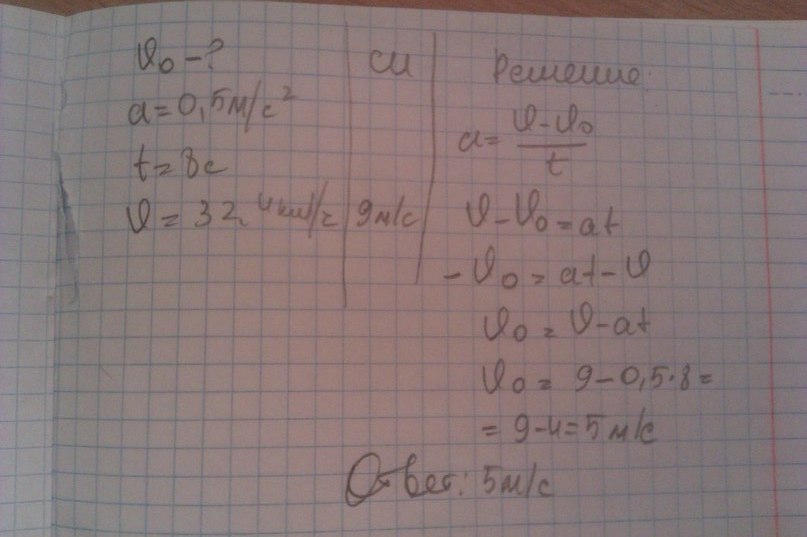 υ₀ - ?
a = 0,5 м/с²
t = 8с
υ = 32,4 км/ч
СИ
9 м/с
Решение:
a = (υ - υ₀)/t
υ - υ₀ = at
-υ₀ = at - υ
υ₀ = υ - at
υ₀ = 9 - 0,5·8 =
= 9-4 = 5 м/с
Ответ: 5 м/с